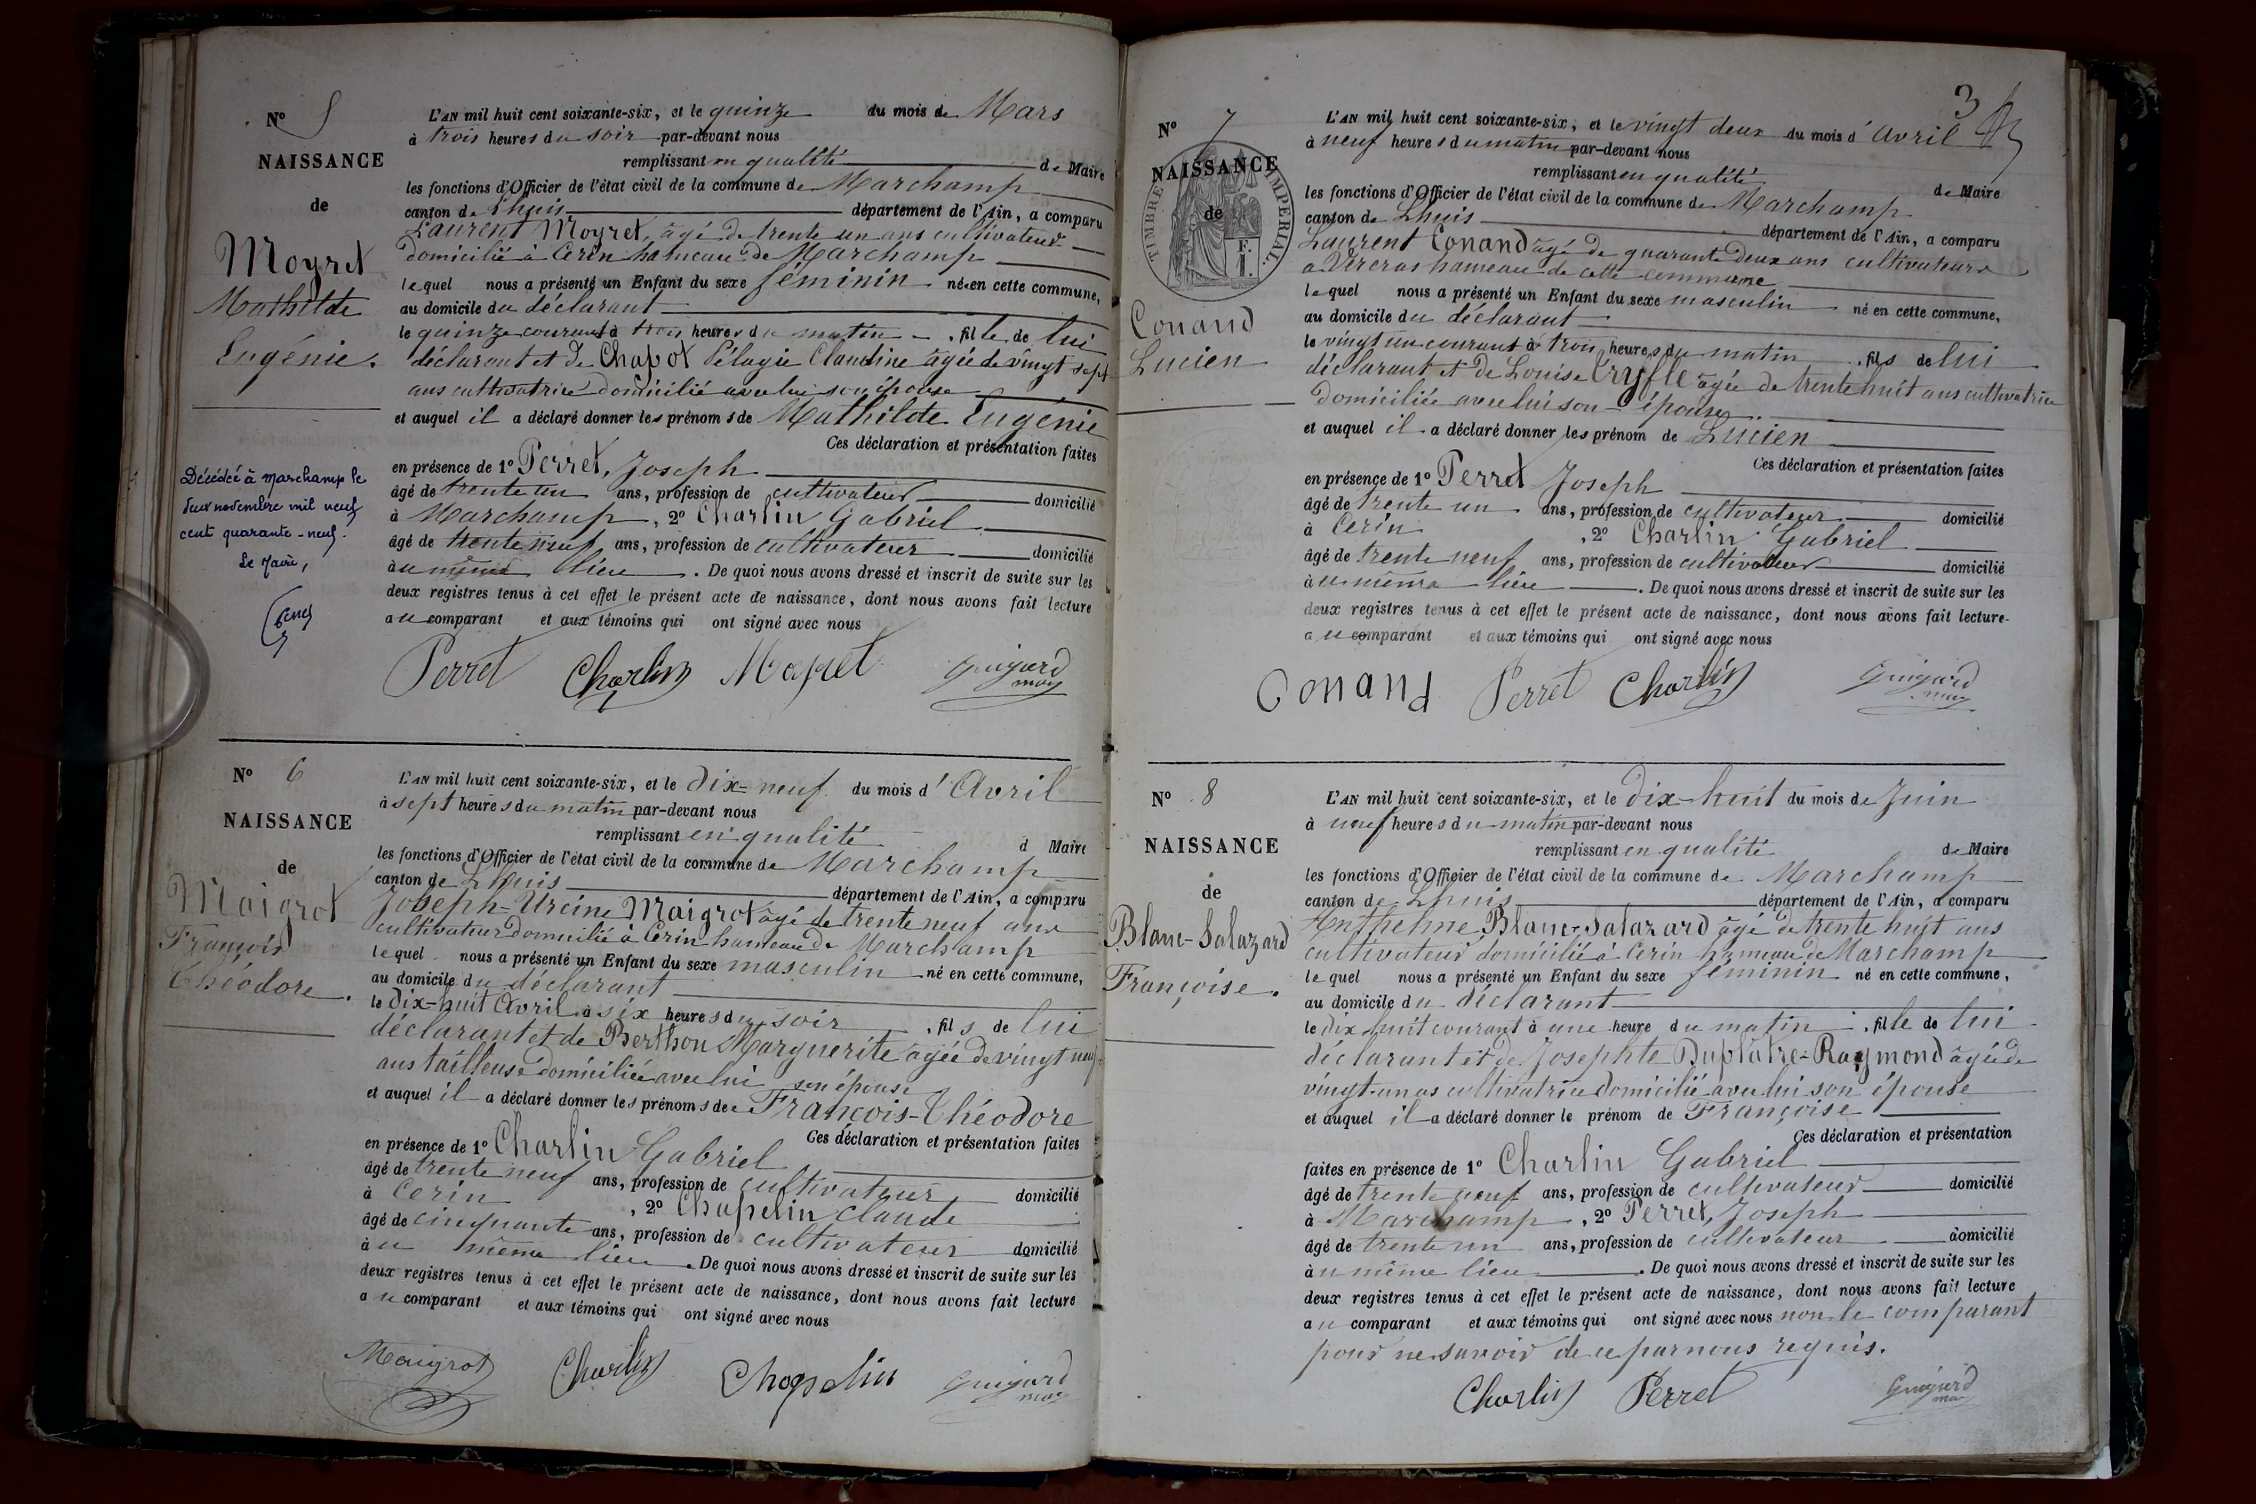 N° 5
NAISSANCE
de
Moyret
Mathilde
Eugénie.
Décédée à Marchamp le
deux novembre mil neuf
cent quarante-neuf.
Le Maire,
L'AN mil huit cent soixante-six, et le quinze du mois de Mars
à trois heures du soir par-devant nous
remplissant en qualité de Maire
les fonctions d'Officier de l'état civil de la commune de Marchamp
canton de Lhuis département de l'Ain, a comparu
Laurent Moyret, âgé de trente un ans cultivateur
domicilié à Cerin hameau de Marchamp
lequel nous a présenté un Enfant du sexe féminin né en cette commune,
au domicile du déclarant
le quinze courant à trois heures du matin, fille de lui
déclarant et de Chapot Pélagie Claudine âgée de vingt sept
ans cultivatrice domicilié avec lui son épouse
et auquel il a déclaré donner les prénoms de Mathilde Eugénie
Ces déclaration et présentation faites
en présence de 1° Perret, Joseph
âgé de trente un ans, profession de cultivateur domicilié
à Marchamp, 2° Charlin Gabriel
âgé de trente neuf ans, profession de cultivateur domicilié
au même lieu. De quoi nous avons dressé et inscrit de suite sur les
deux registres tenus à cet effet le présent acte de naissance, dont nous avons fait lecture
au comparant et aux témoins qui ont signé avec nous
Perret Charlin Moyret Guigard
N° 6
NAISSANCE
de
Maigrot
François
Théodore.
L'AN mil huit cent soixante-six, et le dix-neuf du mois d'Avril
à sept heures du matin par-devant nous
remplissant en qualité d Maire
les fonctions d'Officier de l'état civil de la commune de Marchamp
canton de Lhuis département de l'Ain, a comparu
Joseph-Urcine Maigrot âgé de trente neuf ans
cultivateur domicilié à Cerin hameau de Marchamp
lequel nous a présenté un Enfant du sexe masculin né en cette commune,
au domicile du déclarant
le dix-huit Avril à six heures du soir, fils de lui
déclarant et de Berthon Marguerite âgée de vingt neuf
ans tailleuse domiciliée avec lui son épouse
et auquel il a déclaré donner les prénoms de François-Théodore
Ces déclaration et présentation faites
en présence de 1° Charlin Gabriel
âgé de trente neuf ans, profession de cultivateur domicilié
à Cerin, 2° Chapelin Claude
âgé de cinquante ans, profession de cultivateur domicilié
au même lieu. De quoi nous avons dressé et inscrit de suite sur les
deux registres tenus à cet effet le présent acte de naissance, dont nous avons fait lecture
au comparant et aux témoins qui ont signé avec nous
Maigrot Charlin Chapelin Guigard
3
N° 7
NAISSANCE
de
TIMBRE IMPERIAL.
Conand
Lucien
L'AN mil huit cent soixante-six, et le vingt deux du mois d'Avril
à neuf heures du matin par-devant nous
remplissant en qualité de Maire
les fonctions d'Officier de l'état civil de la commune de Marchamp
canton de Lhuis département de l'Ain, a comparu
Laurent Conand âgé de quarante deux ans cultivateur
a Vercras hameau de cette commune
lequel nous a présenté un Enfant du sexe masculin né en cette commune,
au domicile du déclarant
le vingt un courant à trois heures du matin, fils de lui
déclarant et de Louise Cryfle âgée de trente huit ans cultivatrice
domiciliée avec lui son épouse.
et auquel il a déclaré donner les prénom de Lucien
Ces déclaration et présentation faites
en présence de 1° Perret Joseph
âgé de trente un ans, profession de cultivateur domicilié
à Cerin, 2° Charlin Gabriel
âgé de trente neuf ans, profession de cultivateur domicilié
au même lieu. De quoi nous avons dressé et inscrit de suite sur les
deux registres tenus à cet effet le présent acte de naissance, dont nous avons fait lecture
au comparant et aux témoins qui ont signé avec nous
Conand Perret Charlin Guigard
N° 8
NAISSANCE
de
Blanc-Salazard
Françoise.
L'AN mil huit cent soixante-six, et le dix-huit du mois de Juin
à neuf heures du matin par-devant nous
remplissant en qualité de Maire
les fonctions d'Officier de l'état civil de la commune de Marchamp
canton de Lhuis département de l'Ain, a comparu
Anthelme Blanc-Salazard âgé de trente huit ans
cultivateur domicilié à Cerin hameau de Marchamp
lequel nous a présenté un Enfant du sexe féminin né en cette commune,
au domicile du déclarant
le dix huit courant à une heure du matin, fille de lui
déclarant et de Josephte Duplatre-Raymond âgée de
vingt-un ans cultivatrice domicilié avec lui son épouse
et auquel il a déclaré donner le prénom de Françoise
Ces déclaration et présentation
faites en présence de 1° Charlin Gabriel
âgé de trente neuf ans, profession de cultivateur domicilié
à Marchamp, 2° Perret, Joseph
âgé de trente un ans, profession de cultivateur domicilié
au même lieu. De quoi nous avons dressé et inscrit de suite sur les
deux registres tenus à cet effet le présent acte de naissance, dont nous avons fait lecture
au comparant et aux témoins qui ont signé avec nous non le comparant
pour ne savoir de ce par nous requis.
Charlin Perret Guigard